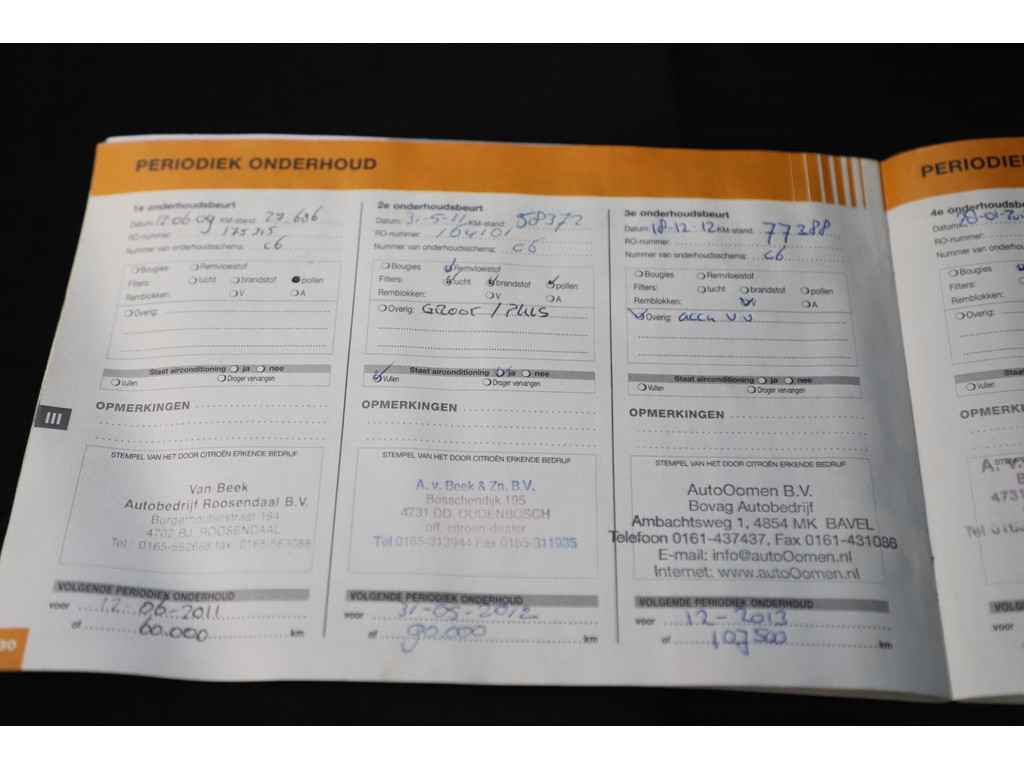 PERIODIEK ONDERHOUD
1e onderhoudsbeurt
Datum: 12-06-09 KM-stand: 27.636
RO-nummer:
Nummer van onderhoudsschema: C6
Bougies Remvloeistof
Filters: lucht brandstof pollen
Remblokken: V A
Overig:
Staat airconditioning ja nee
Vullen Droger vervangen
OPMERKINGEN
STEMPEL VAN HET DOOR CITROËN ERKENDE BEDRIJF
Van Beek
Autobedrijf Roosendaal B.V.
4702 BJ ROOSENDAAL
VOLGENDE PERIODIEK ONDERHOUD
voor 12-06-2011
of 60.000 km
2e onderhoudsbeurt
Datum: 31-5-11 KM-stand: 58372
RO-nummer:
Nummer van onderhoudsschema: C6
Bougies Remvloeistof
Filters: lucht brandstof pollen
Remblokken: V A
Overig: Groot / Plus
Staat airconditioning ja nee
Vullen Droger vervangen
OPMERKINGEN
STEMPEL VAN HET DOOR CITROËN ERKENDE BEDRIJF
A. v. Beek & Zn. B.V.
Bosschendijk 195
4731 DD OUDENBOSCH
off. citroën dealer
Tel 0165-313944 Fax 0165-311935
VOLGENDE PERIODIEK ONDERHOUD
voor 31-05-2012
of 90.000 km
3e onderhoudsbeurt
Datum: 18-12-12 KM-stand: 77288
RO-nummer:
Nummer van onderhoudsschema: C6
Bougies Remvloeistof
Filters: lucht brandstof pollen
Remblokken: V A
Overig: accu v v
Staat airconditioning ja nee
Vullen Droger vervangen
OPMERKINGEN
STEMPEL VAN HET DOOR CITROËN ERKENDE BEDRIJF
AutoOomen B.V.
Bovag Autobedrijf
Ambachtsweg 1, 4854 MK BAVEL
Telefoon 0161-437437, Fax 0161-431086
E-mail: info@autoOomen.nl
Internet: www.autoOomen.nl
VOLGENDE PERIODIEK ONDERHOUD
voor 12-2013
of 107500 km
III
30
PERIODIE
4e onderhoudsb
Datum:
RO-nummer:
Nummer van onderho
Bougies
Filters:
Remblokken:
Overig:
Staat
Vullen
OPMERKIN
VOLG
voor
of